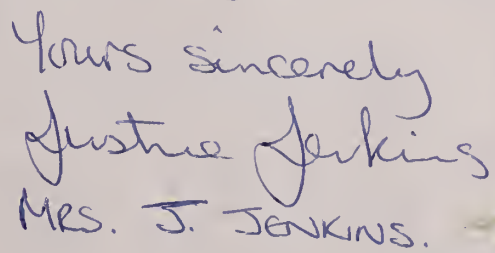 Yours sincerely
Justine Jenkins
MRS. J. JENKINS.